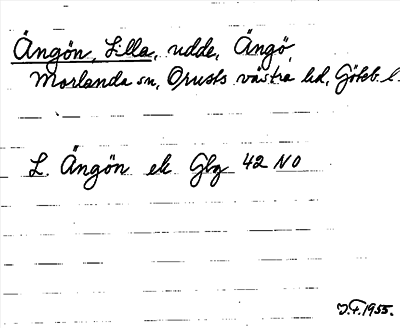 Ängön, Lilla, udde, Ängö,
Morlanda sn, Orusts västra hd, Götebl.
L. Ängön ek Gbg 42 NO
J.F. 1955.